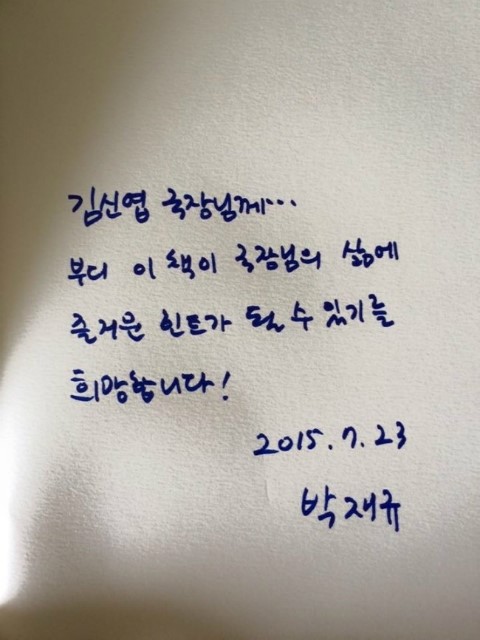 김신엽 국장님께...
부디 이 책이 국장님의 삶에
즐거운 힌트가 될 수 있기를
희망합니다!
2015. 7. 23
박재규